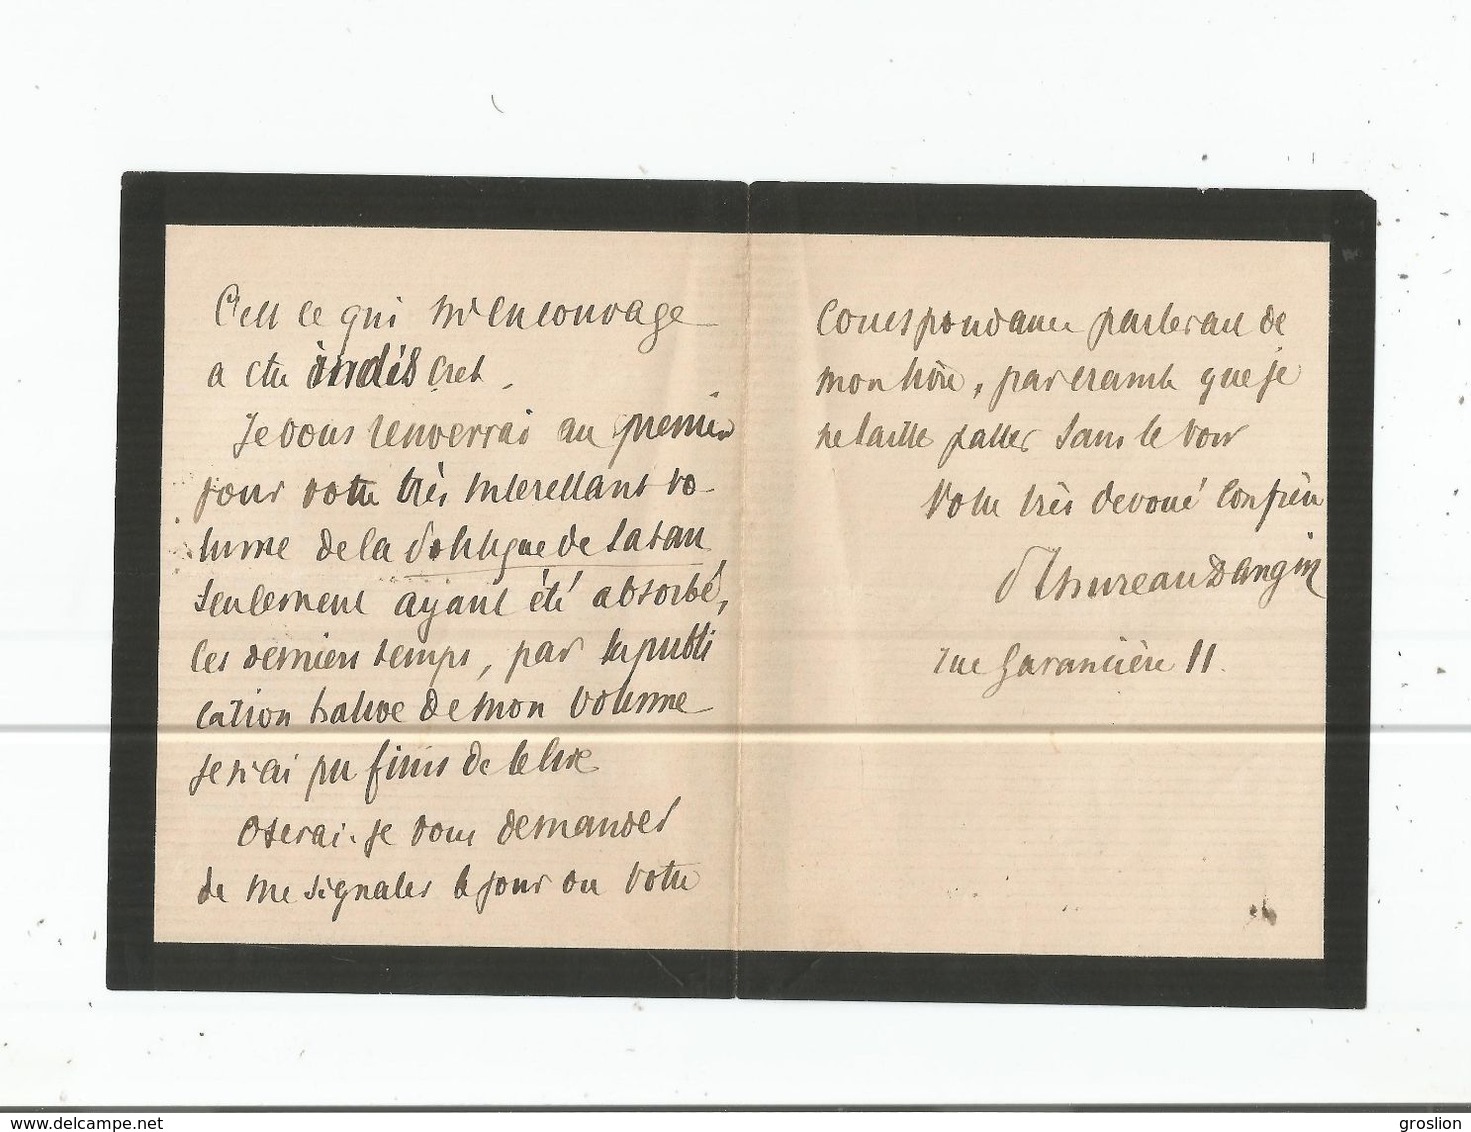 C'est ce qui m'encourage
a etre indiscret.
Je vous renverrai au premier
jour votre très interessant vo-
lume de la Politique de Satan
seulement ayant été absorbé,
ces derniers temps, par la publi
cation hative de mon volume
je n'ai pu finir de le lire
Oserai-je vous demander
de me signaler le jour ou votre
Correspondance parlerait de
mon livre, par crainte que je
ne laisse passer sans le voir
Votre très devoué confrère
P Thureau Dangin
rue Garancière 11.
groslion
www.delcampe.net